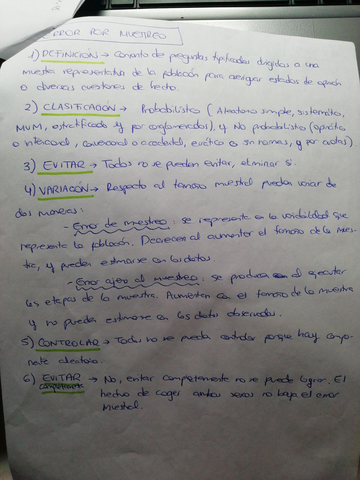 ERROR POR MUESTREO
1) DEFINICIÓN → Conjunto de preguntas tipificadas dirigidas a una
muestra representativa de la población para averiguar estados de opinión
o diversas cuestiones de hecho.
2) CLASIFICACIÓN → Probabilístico (Aleatorio simple, sistemático,
MUM, estratificado y por conglomerados), y No probabilístico (opinático
o intencional, casual o accidental, errático o sin normas, y por cuotas)
3) EVITAR → Todos no se pueden evitar, eliminar sí.
4) VARIACIÓN → Respecto al tamaño muestral pueden variar de
dos maneras:
- Error de muestreo: se representa en la variabilidad que
represente la población. Decrecen al aumentar el tamaño de la mues-
tra, y pueden estimarse en los datos.
- Error ajeno al muestreo: se producen al ejecutar
las etapas de la muestra. Aumentan con el tamaño de la muestra
y no pueden estimarse en los datos observados.
5) CONTROLAR → Todos no se pueden controlar porque hay compo-
nente aleatorio.
6) EVITAR → No, evitar completamente no se puede lograr. El
hecho de coger ambos sexos no baja el error
muestral.